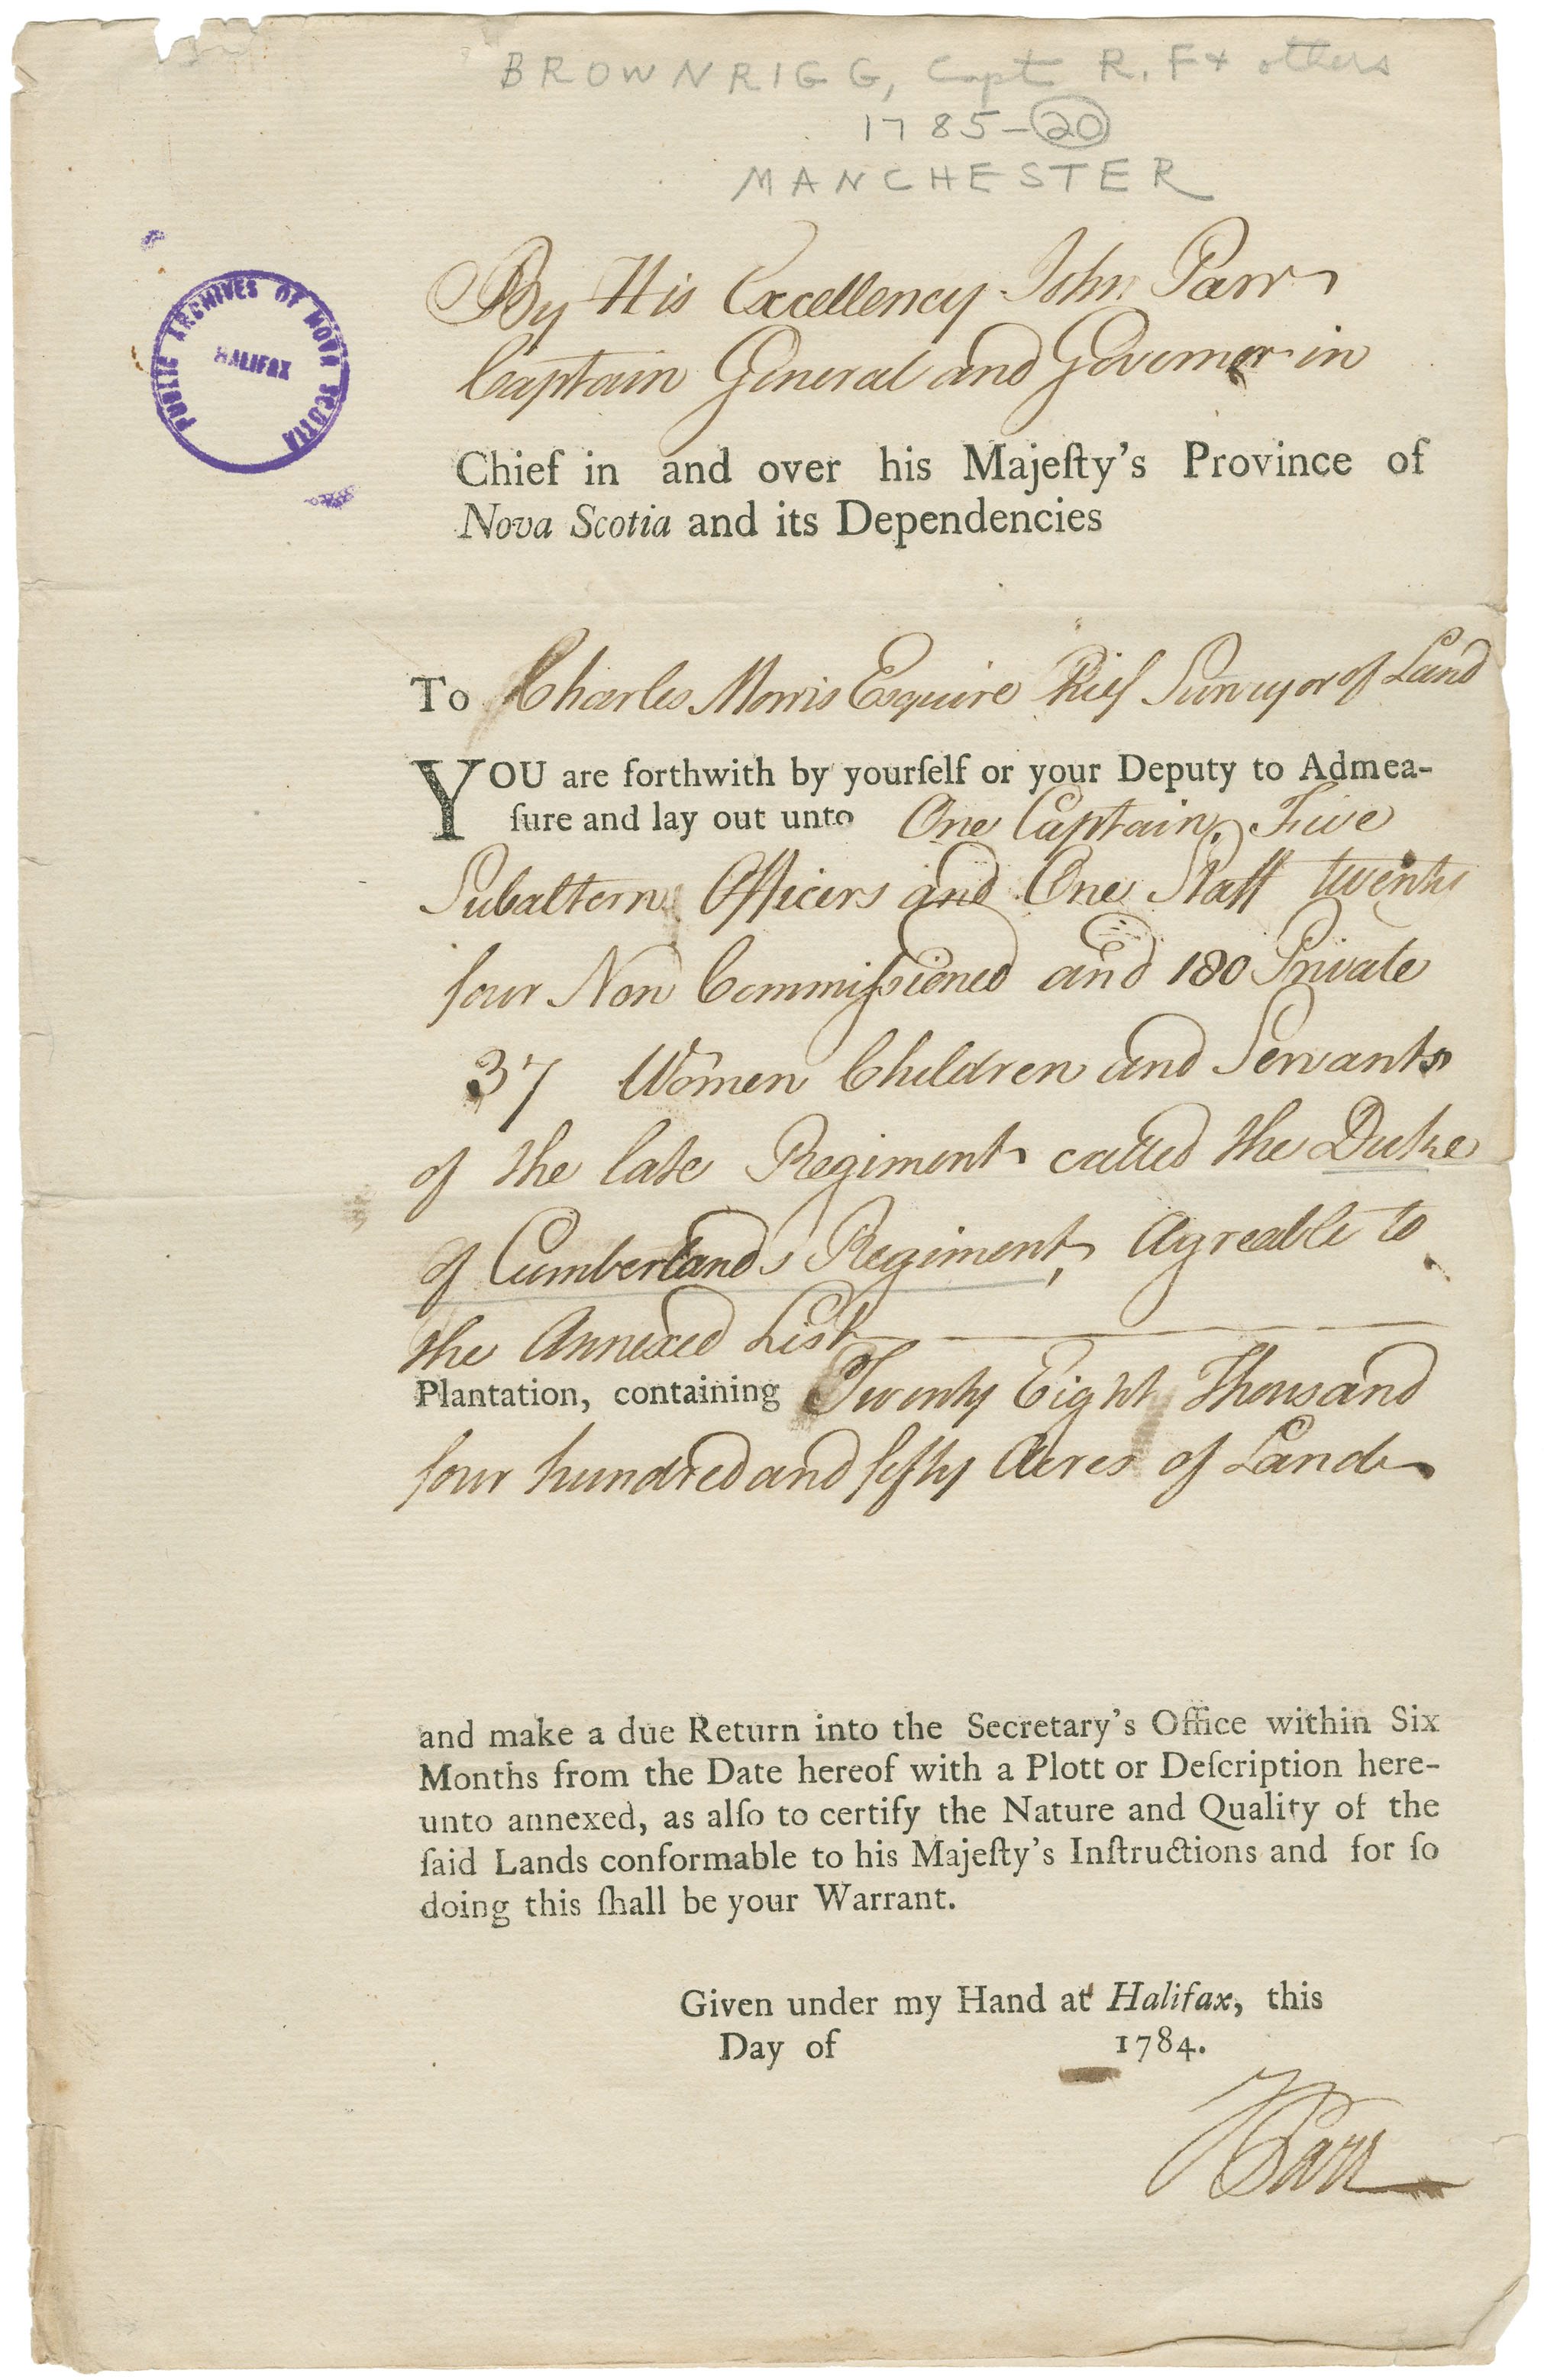 BROWNRIGG, Capt R. F + others
1785-20
MANCHESTER
PUBLIC ARCHIVES OF NOVA SCOTIA
HALIFAX
By His Excellency John Parr
Captain General and Governor in
Chief in and over his Majeſty's Province of
Nova Scotia and its Dependencies
To Charles Morris Esquire Chief Surveyor of Land
YOU are forthwith by yourſelf or your Deputy to Admea-
ſure and lay out unto One Captain, Five
Subaltern Officers and One Staff twenty
four Non Commiſsioned and 180 Private
37 Women Children and Servants
of the late Regiment called the Duke
of Cumberlands Regiment, Agreable to
the Annexed List
Plantation, containing Twenty Eight Thousand
four hundred and fifty Acres of Land
and make a due Return into the Secretary's Office within Six
Months from the Date hereof with a Plott or Deſcription here-
unto annexed, as alſo to certify the Nature and Quality of the
ſaid Lands conformable to his Majeſty's Inſtructions and for ſo
doing this ſhall be your Warrant.
Given under my Hand at Halifax, this
Day of 1784.
J Parr